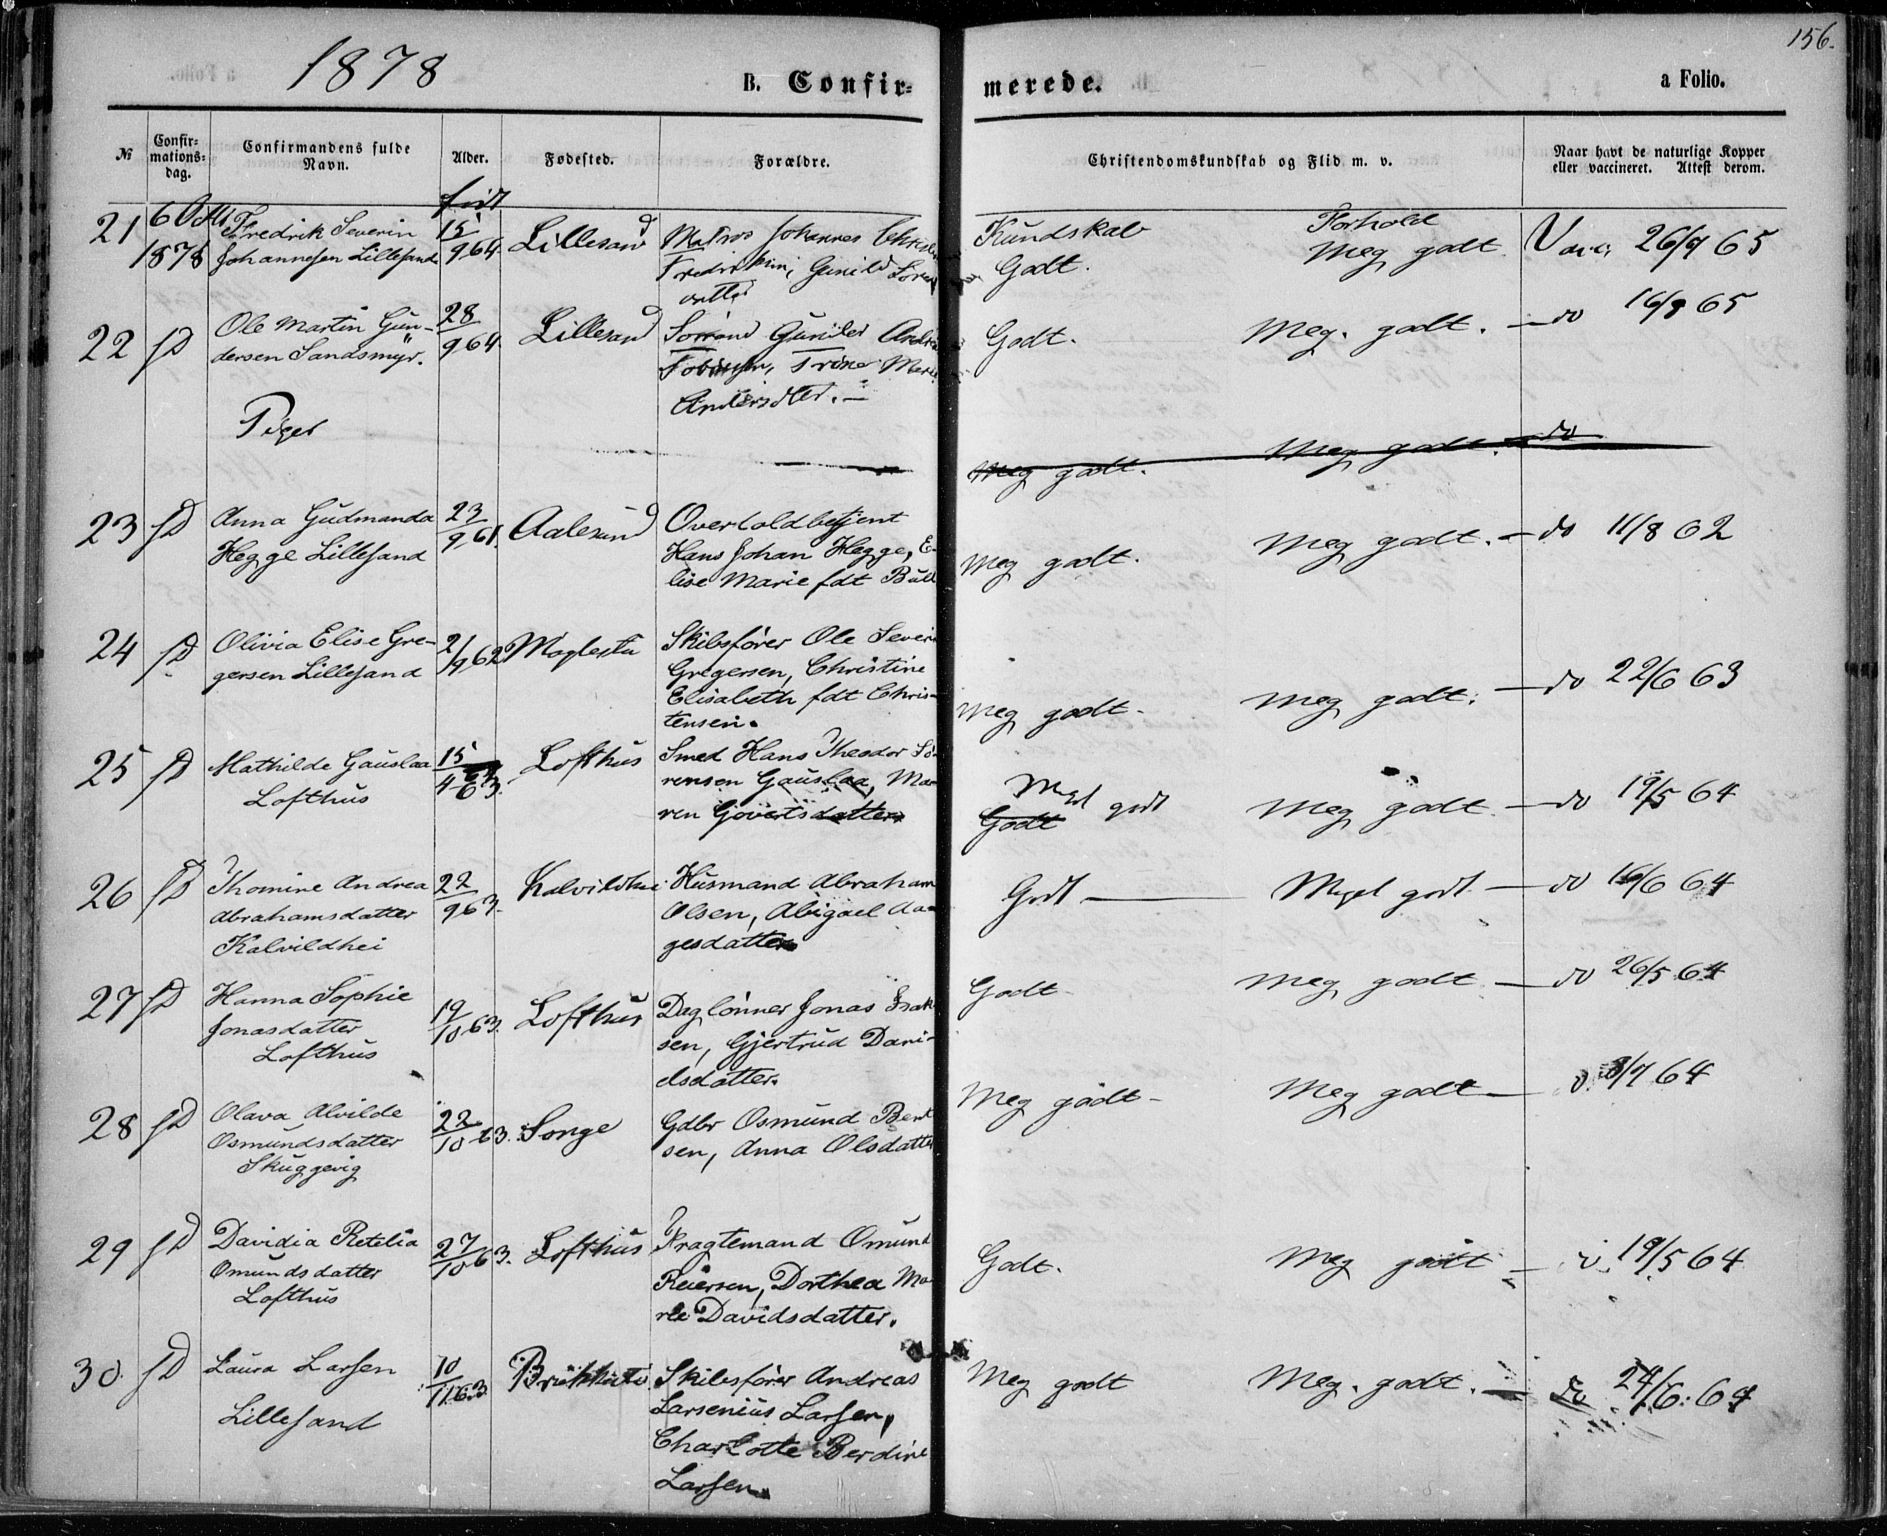 156.
1878
B. Confir=
merede.
a Folio.
№
Confir=
mations=
dag.
Confirmandens fulde
Navn.
Alder.
Fødested.
Forældre.
Christendomskundskab og Flid m. v.
Naar havt de naturlige Kopper
eller vaccineret. Attest derom.
født
21
6 Okt
1878
Fredrik Severin
Johannesen Lillesand
15/9 64.
Lillesand
Matros Johannes
Gunild
Kundskab
Godt.
Forhold
Meg godt
Vacc 26/9 65
22
sD
Ole Martin Gun-
dersen Sandsmyr.
28/9 64.
Lillesand
Gunder
Andersdtr. —
Godt.
Meg. godt. —
do 16/9 65
Piger
Meg godt.
Meg godt. —
do
23
sD
Anna Gudmanda
Hegge Lillesand
23/9 61.
Aalesund
Overtoldbetjent
Hans Johan Hegge, E-
lise Marie fdt Bull
Meg godt.
Meg godt. —
do 11/8 62
24
sD
Olivia Elise Gre-
gersen Lillesand
2/9 62
Moglestu
Skibsfører Ole Severin
Gregersen, Christine
Elisabeth fdt Chris-
tensen.
Meg godt.
Meg godt. —
do 22/6 63
25
sD
Mathilde Gauslaa
Lofthus
15/4 63.
Lofthus
Smed Hans Theodor Sö-
rensen Gauslaa, Ma-
ren Govertsdatter
Meget godt
Godt
Meg godt —
do 19/5 64
26
sD
Thomine Andrea
Abrahamsdatter
Kalvildhei
22/9 63.
Kalvildhei
Husmand Abraham
Olsen, Abigael Aa-
gesdatter
Godt —
Meget godt —
do 16/6 64
27
sD
Hanna Sophie
Jonasdatter
Lofthus
19/10 63.
Lofthus
Daglönner Jonas Isak-
sen, Gjertrud Dani-
elsdatter.
Godt
Meg godt —
do 26/5 64
28
sD
Olava Alvilde
Osmundsdatter
Skuggevig
22/10 63.
Songe
Gdbr Osmund Bent
sen, Anna Olsdatter
Meg godt —
Meg godt —
/7 64
29
sD
Davidia Retelia
Omundsdatter
Lofthus
27/10 63.
Lofthus
Fragtemand Omund
Reiersen, Dorthea Ma-
rie Davidsdatter.
Godt.
Meg godt —
19/5 64
30.
sD
Laura Larsen
Lillesand
10/11 63
Skibsfører Andreas
Larsenius Larsen,
Charlotte Berdine
Larsen.
Meg godt
Meg. godt. —
do 24/6 64